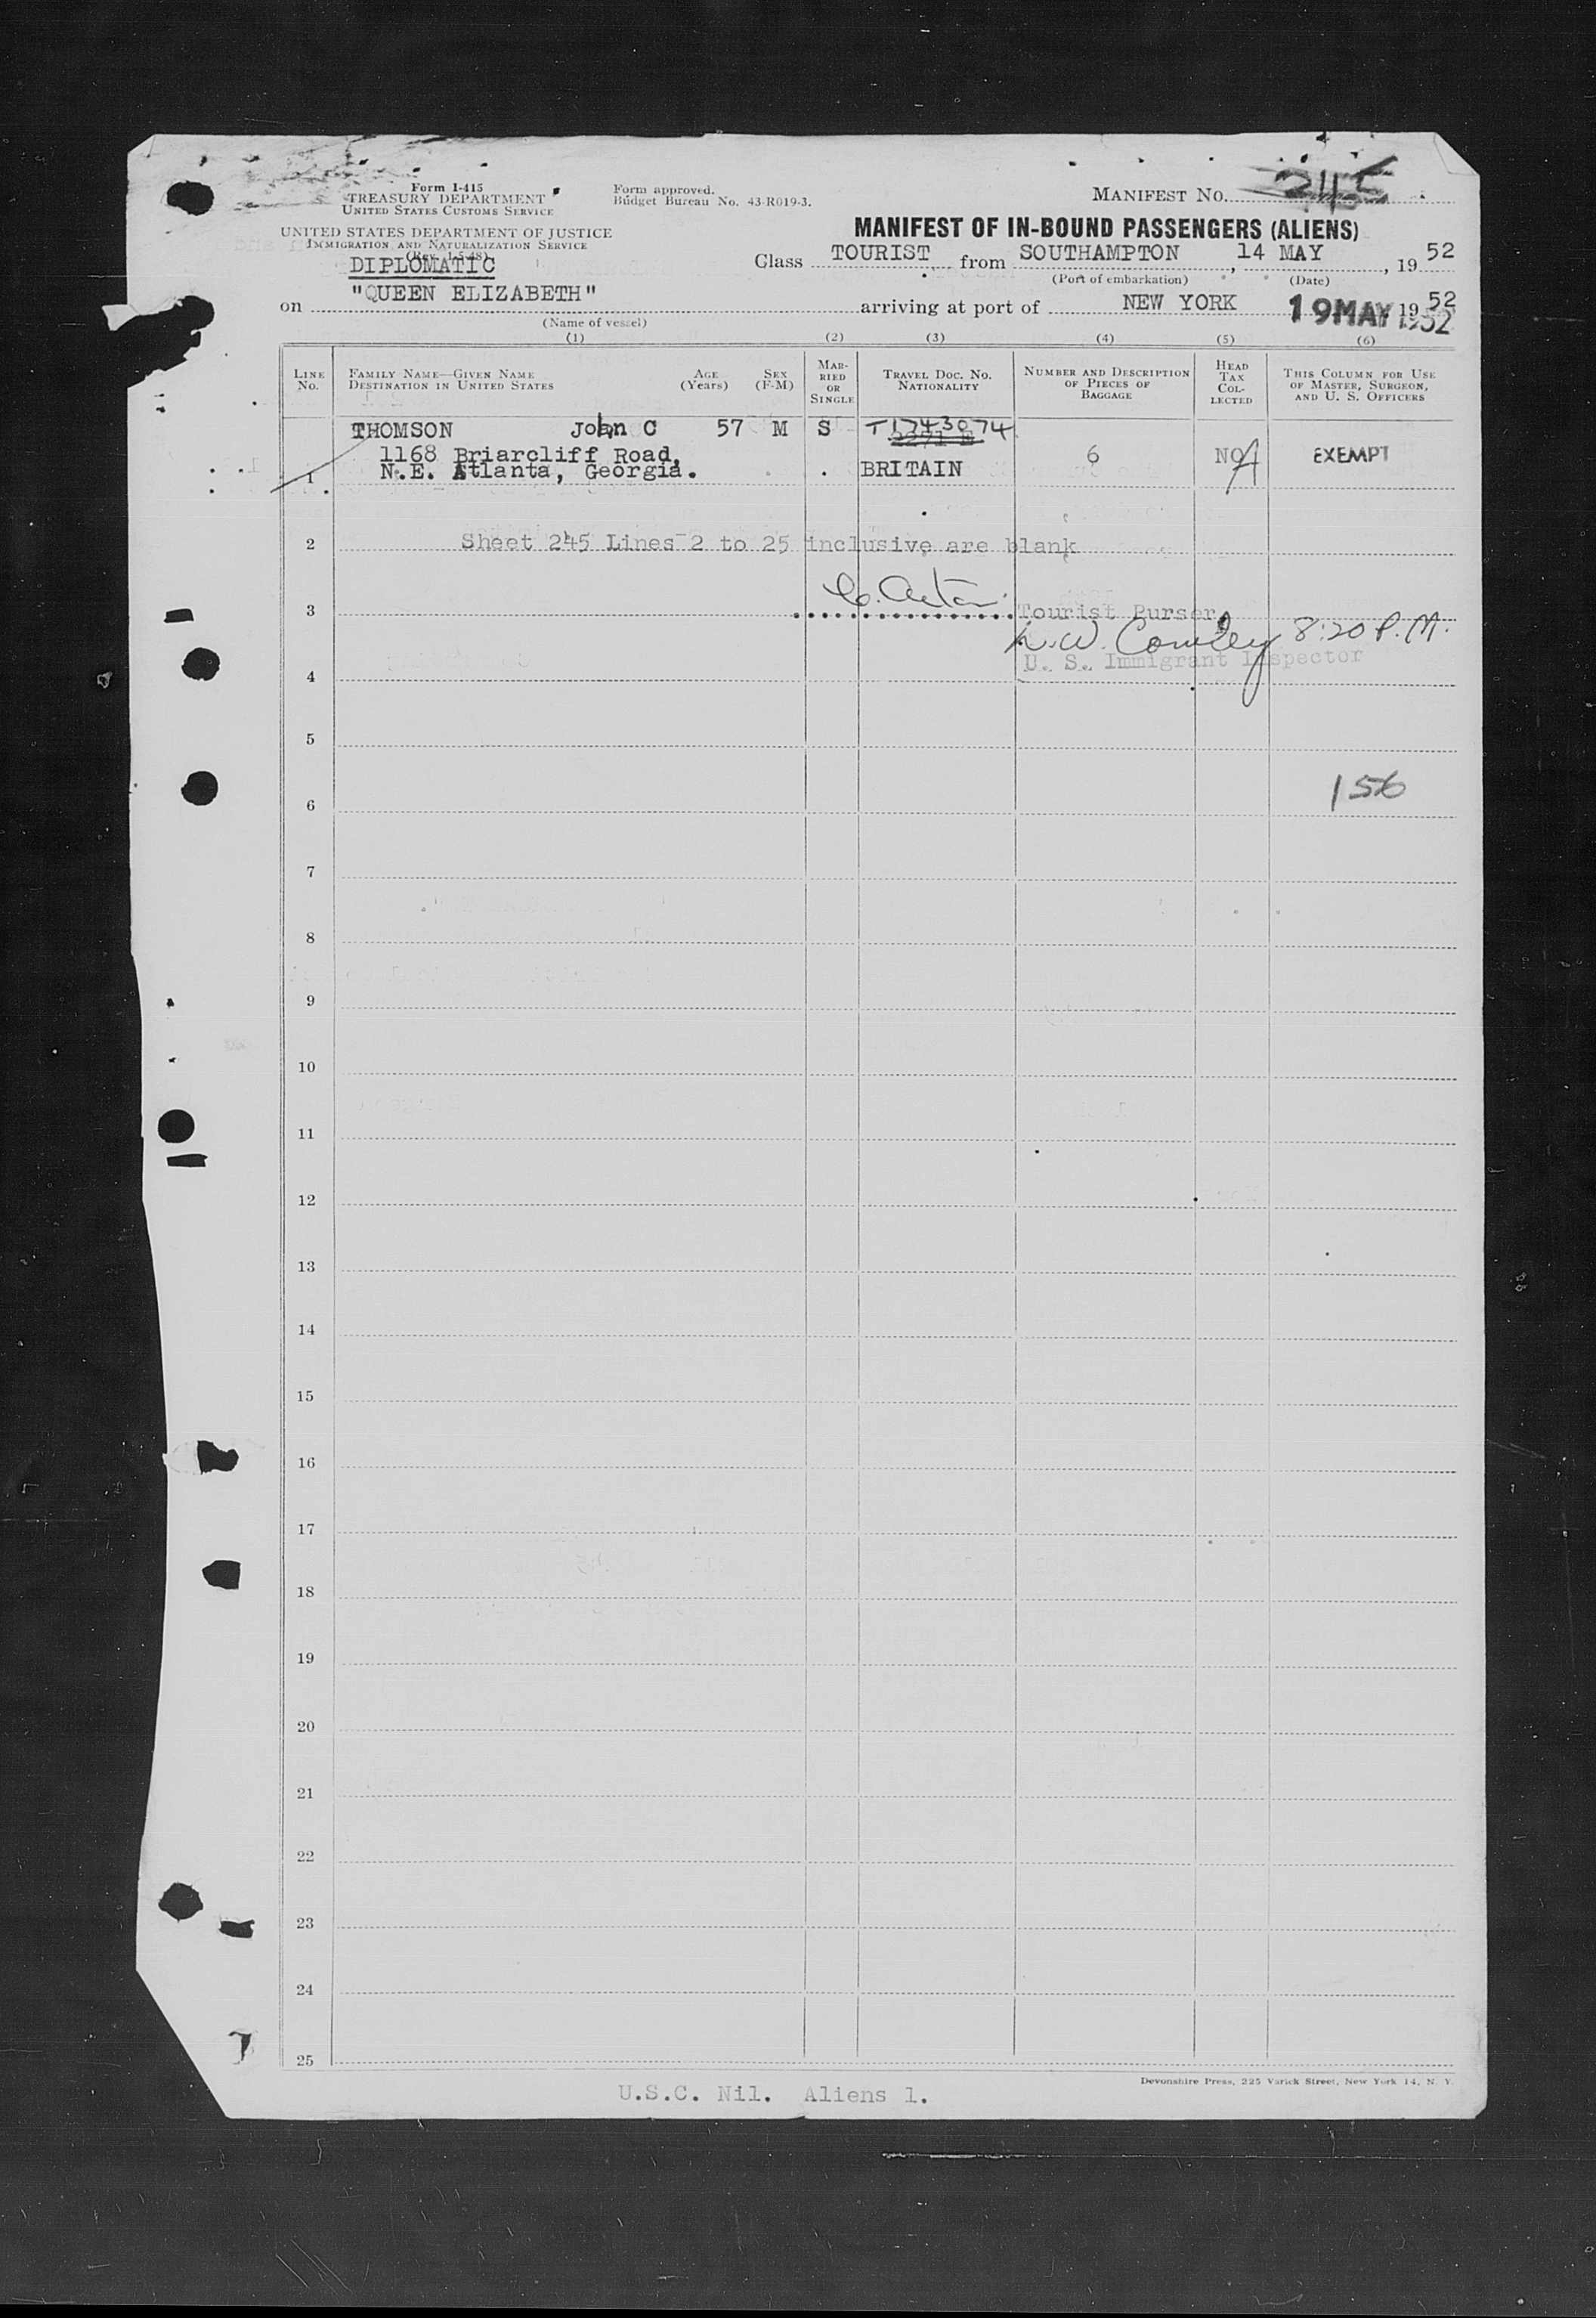 Form I-415
TREASURY DEPARTMENT
UNITED STATES CUSTOMS SERVICE
UNITED STATES DEPARTMENT OF JUSTICE
IMMIGRATION AND NATURALIZATION SERVICE
(Rev. 1-5-48)
Form approved.
Budget Bureau No. 43-R019-3.
MANIFEST NO. 245
MANIFEST OF IN-BOUND PASSENGERS (ALIENS)
DIPLOMATIC
Class TOURIST from SOUTHAMPTON, 14 MAY, 19 52
(Port of embarkation) (Date)
on "QUEEN ELIZABETH" arriving at port of NEW YORK 19 MAY 1952 19 52
(Name of vessel)
(1) (2) (3) (4) (5) (6)
LINE NO. FAMILY NAME—GIVEN NAME DESTINATION IN UNITED STATES AGE (Years) SEX (F-M) MARRIED OR SINGLE TRAVEL DOC. NO. NATIONALITY NUMBER AND DESCRIPTION OF PIECES OF BAGGAGE HEAD TAX COLLECTED THIS COLUMN FOR USE OF MASTER, SURGEON, AND U. S. OFFICERS
THOMSON John C 57 M S T1743074
1168 Briarcliff Road, 6 NO EXEMPT
1 N.E. Atlanta, Georgia. BRITAIN
2 Sheet 245 Lines 2 to 25 inclusive are blank
3 Tourist Purser
8:20 P.M.
U. S. Immigrant Inspector
4
5
156
6
7
8
9
10
11
12
13
14
15
16
17
18
19
20
21
22
23
24
25
Devonshire Press, 225 Varick Street, New York 14, N. Y.
U.S.C. Nil. Aliens 1.